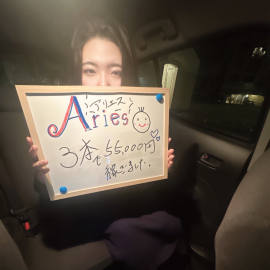 アリエス
Aries
3本で55,000円
稼ぎました。